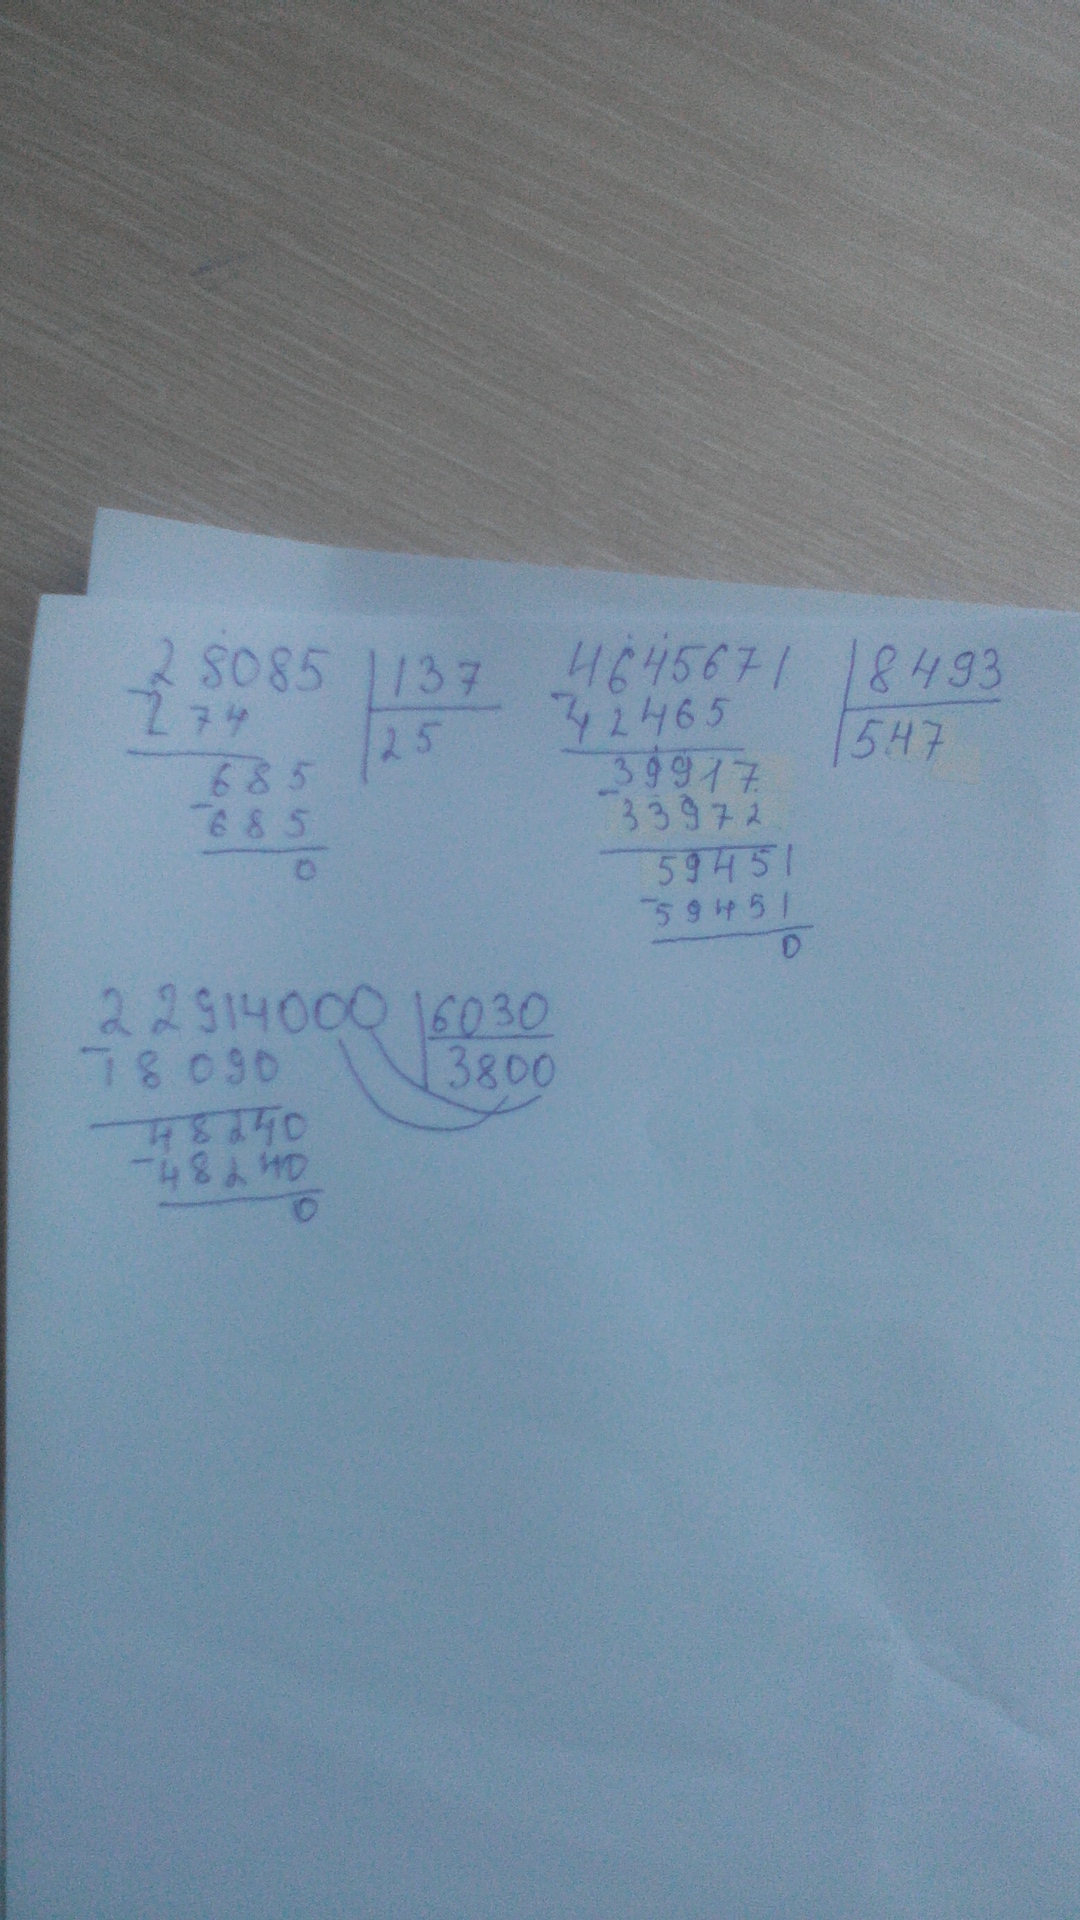 28085 | 137
- 274 | 25
685
- 685
0
4645671 | 8493
- 42465 | 547
39917
- 33972
59451
- 59451
0
22914000 | 6030
- 18090 | 3800
48240
- 48240
0